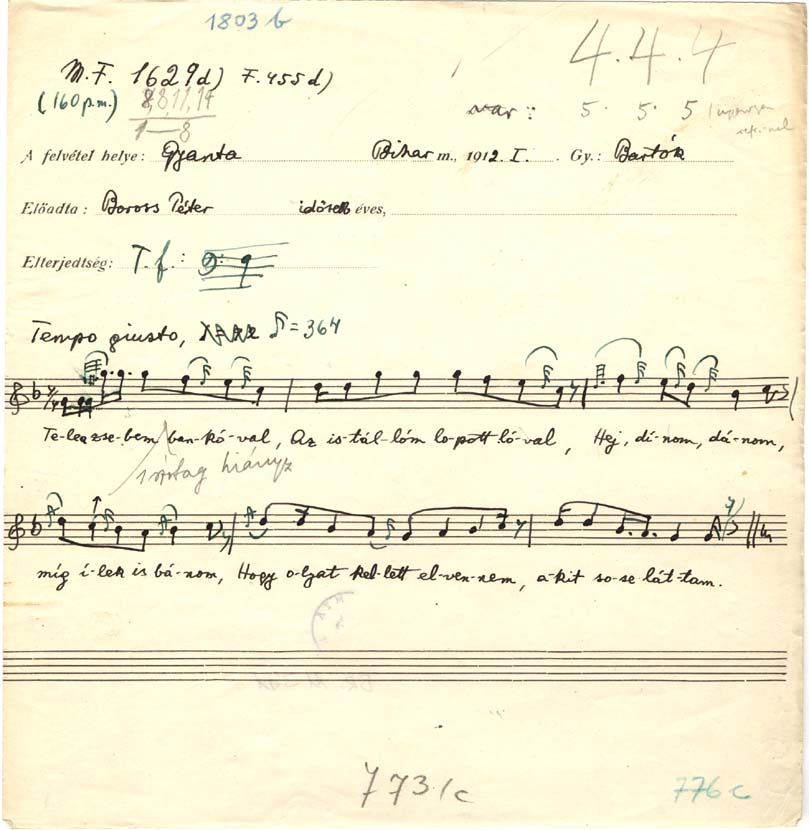 1803 b
4.4.4
M.F. 1629d) F.455d)
(160 p.m.) 8,8,11,14
1—8
var: 5. 5. 5
A felvétel helye: Gyanta Bihar m., 1912. I. Gy.: Bartók
Előadta: Boross Péter idősebb éves,
Elterjedtség: T. f.:
Tempo giusto, = 364
Te-le a zse-bem ban-kó-val, Az is-tál-lóm lo-pott ló-val, Hej, dí-nom, dá-nom,
1 szótag hiányz
míg é-lek is bá-nom, Hogy o-lyat kel-lett el-ven-nem, a-kit so-se lát-tam.
773/c
776 c